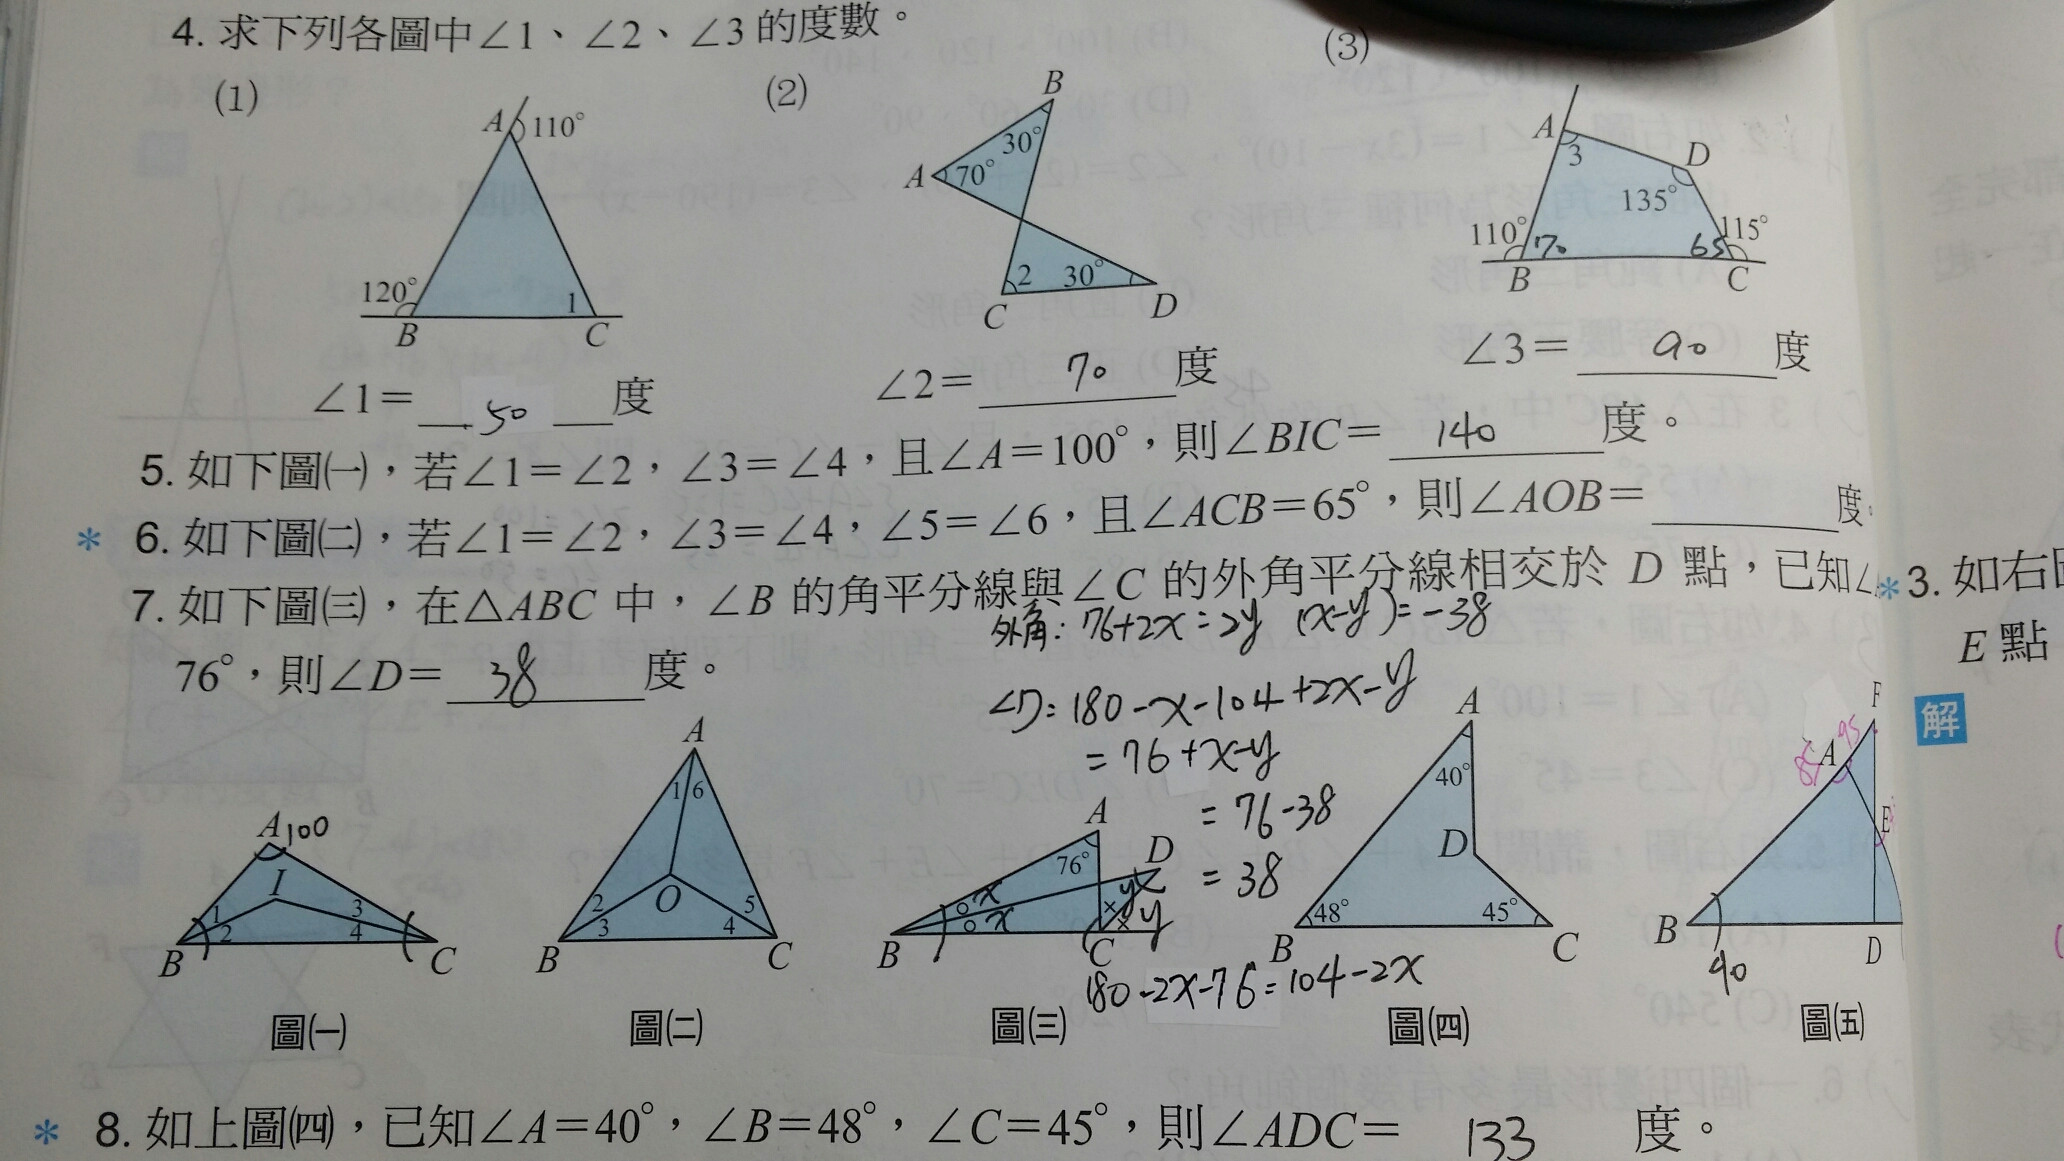 4. 求下列各圖中∠1、∠2、∠3的度數。
(1)
(2)
(3)
A 110°
120°
B
1
C
B
30°
A 70°
2 30°
C
D
A
3
D
135°
110° 70
65 115°
B
C
∠1=50度
∠2=70度
∠3=90度
5. 如下圖㈠,若∠1=∠2,∠3=∠4,且∠A=100°,則∠BIC=140度。
* 6. 如下圖㈡,若∠1=∠2,∠3=∠4,∠5=∠6,且∠ACB=65°,則∠AOB=度
7. 如下圖㈢,在△ABC中,∠B的角平分線與∠C的外角平分線相交於D點,已知∠
外角: 76+2x=2y (x-y)=-38
76°,則∠D=38度。
∠D=180-x-104+2x-y
=76+x-y
=76-38
=38
A 100
I
1
2
3
4
B
C
圖㈠
A
1 6
2
3
O
5
4
B
C
圖㈡
A
76°
D
x
x
y
y
B
C
180-2x-76=104-2x
圖㈢
A
40°
D
48°
45°
B
C
圖㈣
F
95
85 A
E
B
40
D
圖㈤
* 8. 如上圖㈣,已知∠A=40°,∠B=48°,∠C=45°,則∠ADC=133度。
* 3. 如右
E點
解